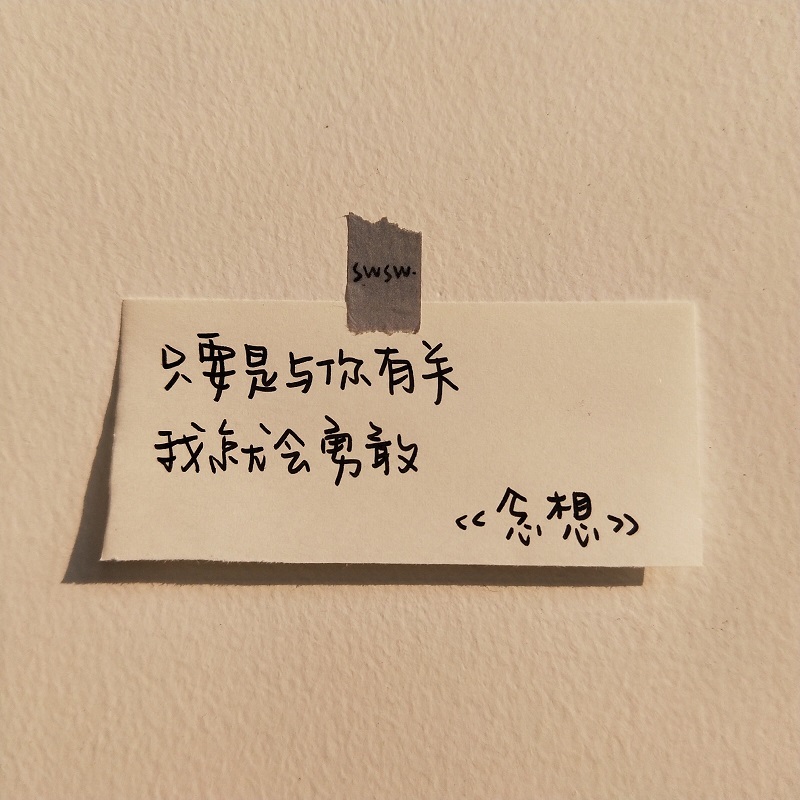 swsw.
只要是与你有关
我就会勇敢
《念想》